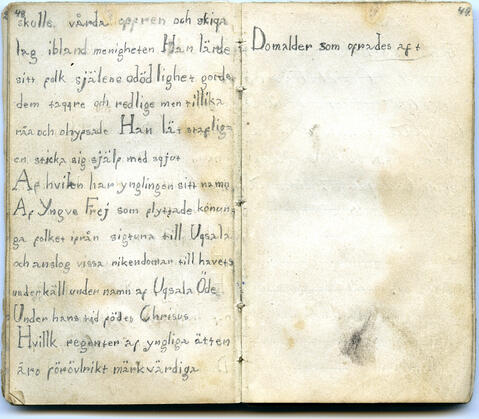 48.
skulle vårda offren och skipa
lag ibland menigheten Han lärde
sitt folk själens odödlighet gorde
dem tappre och redlige men tillika
råa och ohypsade Han lät
en sticka sig själf med spjut
Af hviken har ynglingen sitt namn
Af Yngve Frej som flyttade konun
ga folket ifrån sigtuna till Upsala
och anslog vissa rikendomar till havets
underkäll under namn af Upsala Öde
Under hans tid födes Chrisus
Hvillk regenter af yngliga ätten
äro förövlrikt märkvärdiga
49.
Domalder som ofrades af t